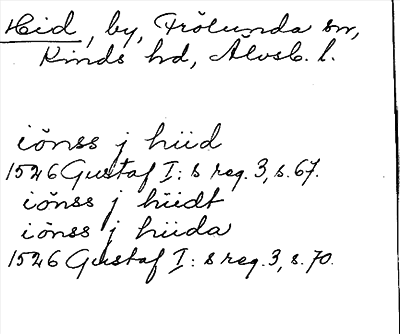 Hid, by, Frölunda sn,
Kinds hd, Älvsb. l.
iönss j hiid
1526 Gustaf I:s reg. 3, s. 67.
iönss j hiidt
iönss j hiida
1526 Gustaf I:s reg. 3, s. 70.